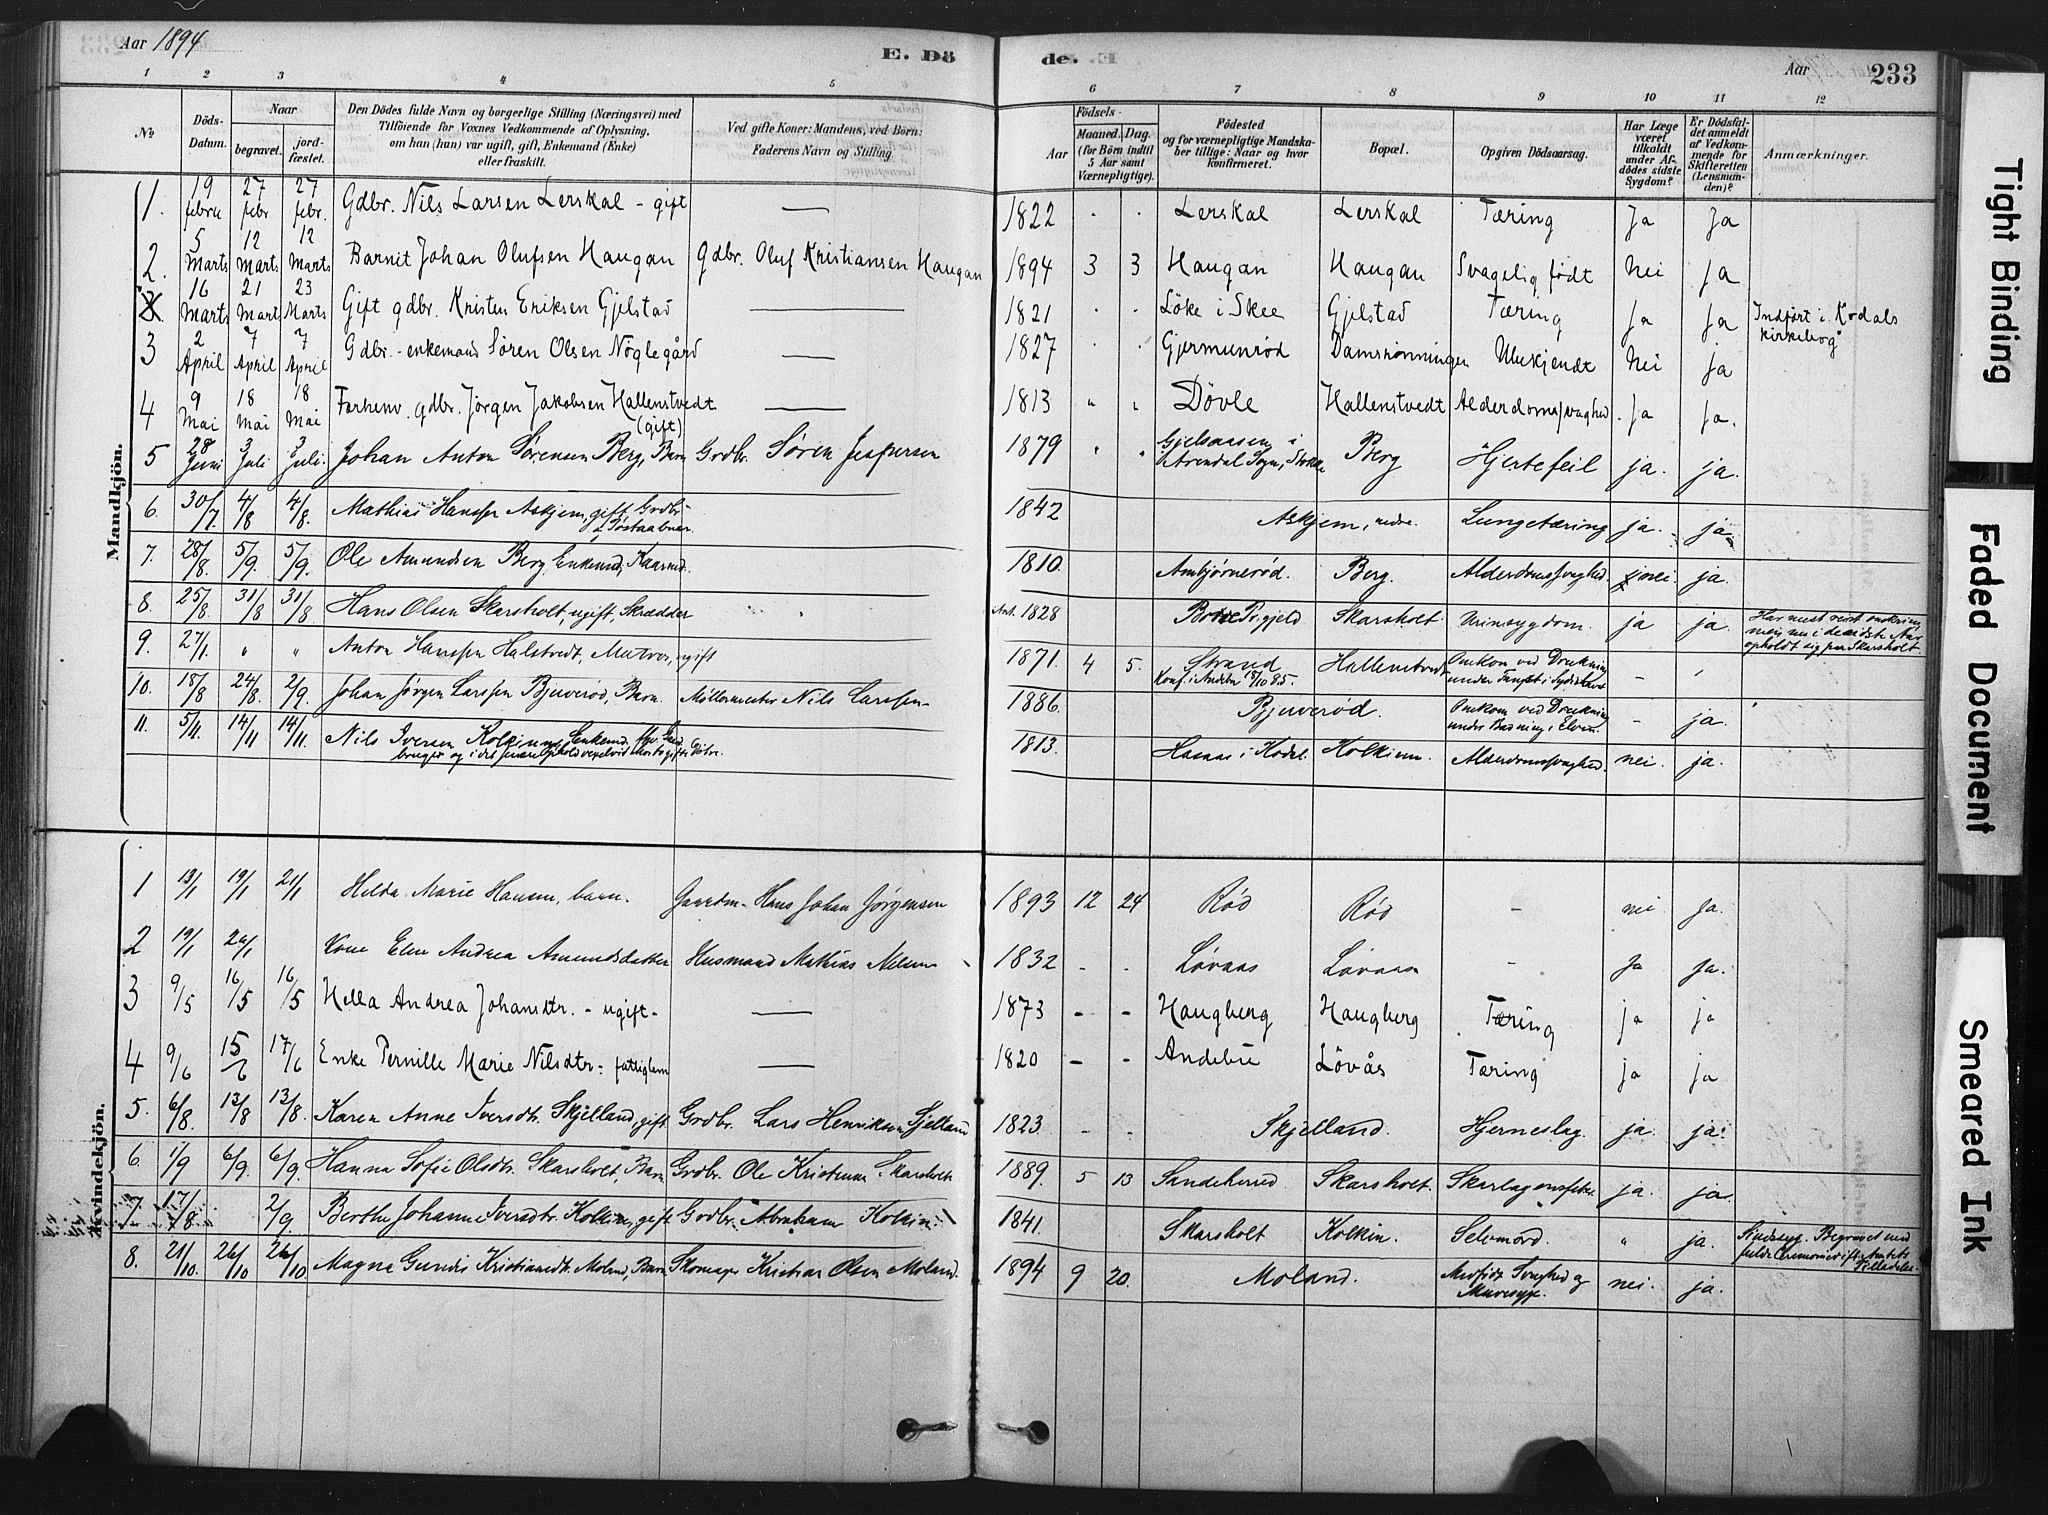 Aar 1894
E. Dö
de.
Aar
233
1 2 3 4 5 6 7 8 9 10 11 12
No
Döds-Datum.
Naar
begravet.
jord-fæstet.
Den Dödes fulde Navn og borgerlige Stilling (Næringsvei) med
Tilföiende for Voxnes Vedkommende af Oplysning,
om han (hun) var ugift, gift, Enkemand (Enke)
eller fraskilt.
Ved gifte Koner: Mandens, ved Börn:
Faderens Navn og Stilling
Födsels-
Aar
Maaned. Dag.
(for Börn indtil
5 Aar samt
Værnepligtige).
Födested
og for værnepligtige Mandska-
ber tillige: Naar og hvor
konfirmeret.
Bopæl.
Opgiven Dödsaarsag.
Har Læge
været
tilkaldt
under Af-
dödes sidste
Sygdom?
Er Dödsfal-
det anmeldt
af Vedkom-
mende for
Skifteretten
(Lensman-
den)?
Anmærkninger.
Mandkjön.
1. 19 febru 27 febr 27 febr. Gdbr. Nils Larsen Lerskal - gift — 1822 Lerskal Lerskal Tæring Ja Ja
2. 5 Marts 12 Marts 12 Marts Barnit Johan Olufsen Haugan Gdbr. Oluf Kristiansen Haugan 1894 3 3 Haugan Haugan Svagelig födt Nei Ja
16 Marts 21 Mart 23 Marts Gift gdbr. Kristen Eriksen Gjelstad — 1821 Löke i Skee Gjelstad Tæring Ja Ja Indfört i Kodals kirkebog
3 2 April 7 April 7 April Gdbr. - enkemand Sören Olsen Nöglegård — 1827 Gjermunröd Damsrönningen Ubekjendt Nei Ja
4 9 Mai 18 Mai 18 Mai Forhenv. gdbr. Jörgen Jakobsen Hallenstvedt (gift) — 1813 " " Dövle Hallenstvedt Alderdomssvaghed Ja Ja.
5 28 Juni 3 Juli 3 Juli. Johan Anton Sørensen Berg, Barn Grdbr. Søren Jespersen 1879 " " i Arendal Sogn, Stokke Berg Hjertefeil ja. ja.
6. 30/7. 4/8 4/8. Mathias Hanssen Askjem, gift Grdbr. 1842 Askjem, nedre. Lungetæring ja. ja
7. 28/8. 5/9. 5/9. Ole Amundsen Berg, Enkemd, Kaarmd. 1810. Ambjørnerød. Berg. Alderdomssvaghed. nei. ja.
8. 25/8. 31/8 31/8 Hans Olsen Skarsholt, ugift, Skrædder " Ant. 1828 Skarsholt. Urinsygdom. ja ja.
9. 27/1. " " Anton Hanssen Halstvedt, Matros, ugift 1871. 4 5. Strand Konf. i Andebu 18/10 85. Hallenstvedt Omkom ved Drukning under Fangst i Sydishavet - "
10. 18/8 24/8. 2/9. Johan Jørgen Larssen Bjuerød, Barn. Møllemester Nils Larssen 1886. Bjuerød. Omkom ved Drukning under Badning i Elven. - ja.
11. 5/11. 14/11 14/11. Nils Iversen Kolkinn, Enkemd, 1813. i Kodal Kolkinn. Alderdomssvaghed. nei. ja.
Kvindekjön.
1 13/1 19/1 21/1 Helda Marie Hansen, barn. Gaardm. Hans Johan Jørgensen 1893 12 24 Rød Rød - nei Ja.
2 19/1 26/1 Kone Elen Andrea Amundsdatter Husmand Mathias Nilsen 1832 - - Løvaas Løvaas - Ja Ja.
3 9/5 16/5 16/5 Hella Andrea Johansdtr. - ugift - — 1873 - - Haugberg Haugberg Tæring ja ja
4 9/6 15/6 17/6 Enke Pernille Marie Nilsdtr - fattiglem — 1820 - - Andebu Lövås Tæring ja ja
5. 6/8. 13/8 13/8. Karen Anne Iversdtr. Skjelland, gift Grdbr. Lars Henriksen Sjelland 1823 - - Skjelland. Hjerneslag. ja. ja.
6. 1/9 6/9. 6/9. Hanna Sofie Olsdtr. Skarsholt, Barn Grdbr. Ole Kristensen Skarsholt 1889. 5 13 Sandeherred Skarsholt. Skarlagensfeber ja. ja.
7. 17/8 2/9. Berthe Johanne Iversdtr. Kolkinn, gift Grdbr. Abraham Kolkin. 1841. Skarsholt Kolkin. Selvmord. " ja. Sindssyg. Begravet med fulde Ceremonier ift. Amtets Tilladelse.
8. 21/10. 26/10 26/10 Magna Gundis Kristiansdtr. Moland, Barn Skomager Kristian Olsen Moland. 1894 9 20. Moland. Medfødt Svaghed og nei. ja.
Tight Binding
Faded Document
Smeared Ink